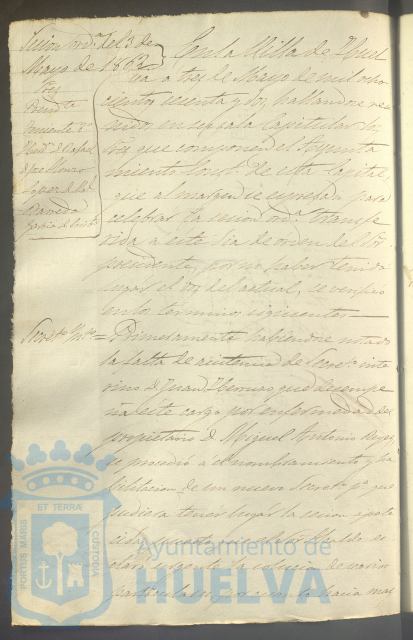 Sesion ordª. del 3 de
Mayo de 1862
Sres
Presidte.
Teniente 1º
En la Villa de Huel
va a tres de Mayo de mil ocho
cientos sesenta y dos, hallandose re
unidos en su sala Capitular los
Sres que componen el Ayunta
miento Const. de esta Capital,
que al margen se espresan para
celebrar la sesion ordª. transfe
rida a este dia de orden del Sor
presidente, por no haber tenido
lugar el dos del actual, se verificó
en los terminos siguientes
Secretº. Intº. = Primeramente habiendose notado
la falta de asistencia del Secretº. inte
rino D. Juan que desempe
ña este cargo por enfermedad del
propietario D. Miguel Antonio Reyes,
se procedió a el nombramiento y ha
bilitacion de un nuevo Secretº. pª. que
pudiera tener lugar la sesion
de varios
particulares, por cuanto hacia mas
PORTUS MARIS
ET TERRÆ
CUSTODIA
Ayuntamiento de
HUELVA